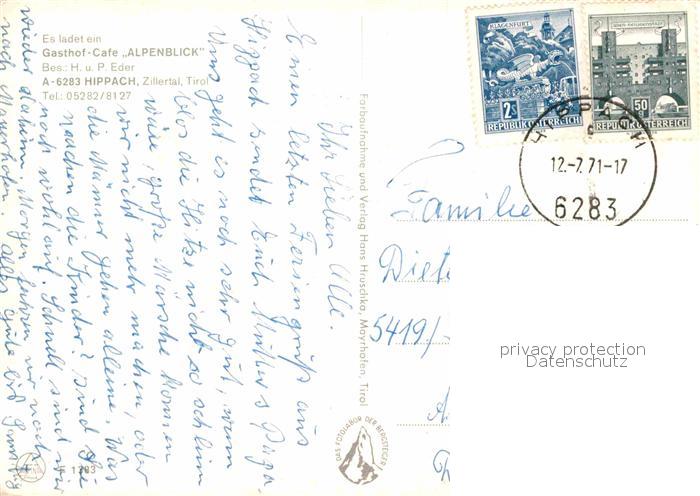 Es ladet ein
Gasthof-Cafe „ALPENBLICK"
Bes.: H. u. P. Eder
A-6283 HIPPACH, Zillertal, Tirol
Tel.: 05282/8127
Ihr Lieben Alle.
Einen letzten Feriengruß aus
Hippach sendet Euch Mutter u. Papa.
Uns geht es noch sehr gut, wenn
blos die Hitze nicht so schlimm
wäre, große Märsche können
wir nicht mehr machen, oder
die Männer gehen alleine. Was
machen die Kinder? sind Sie
noch wohlauf. Schnell sind wir
wieder daheim, Morgen fahren wir noch
nach Mayrhofen. Alles Gute bis Sonntag
F 1383
Farbaufnahme und Verlag Hans Hruschka, Mayrhofen, Tirol
DAS FOTOLABOR DER BERGSTEIGER
KLAGENFURT
2S
REPUBLIK ÖSTERREICH
50
REPUBLIK ÖSTERREICH
HIPPACH
12.-7.71-17
6283
Familie
Diet
5419/
privacy protection
Datenschutz